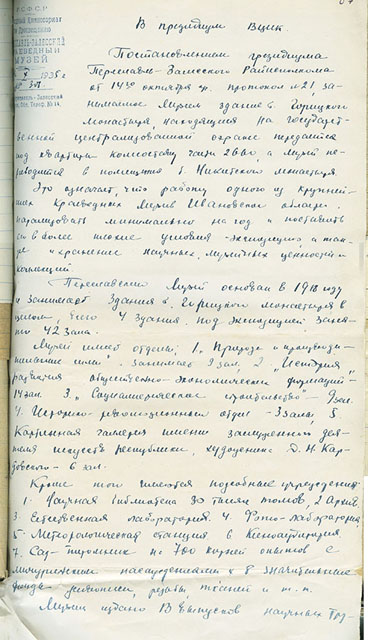 РСФСР
МУЗЕЙ
1935 г.
В президиум ВЦИК.
Постановлением президиума
Переславль-Залесского Райисполкома
от 14го октября с/г. протокол №21, за-
нимаемое Музеем здание б. Горицкого
монастыря, находящееся на государст-
венной централизованной охране передается
под квартиры комсоставу части 2660, а музей пе-
реводится в помещение б. Никитского монастыря.
Это означает, что работу одного из крупней-
ших Краеведных Музеев Ивановской области
парализовать минимально на год и поставить
его в более плохие условия экспозиции, а так-
же хранение научных, музейных ценностей и
коллекций.
Переславский Музей основан в 1918 году
и занимает здания б. Горицкого монастыря в
целом, всего 4 здания. под экспозицией заня-
то 42 зала.
Музей имеет отделы: 1. "Природа и производи-
тельные силы". занимает 9 зал, 2. "История
развития общественно-экономических формаций"-
14 зал. 3. "Социалистическое строительство"- 9 зал.
4. Историко-революционный отдел - 3 зала, 5.
Картинная галлерея имени заслуженного дея-
теля искусств республики, художника Д. Н. Кар-
довского - 6 зал.
Кроме того имеются подсобные учреждения:
1. Научная библиотека 30 тысяч томов, 2. Архив.
3. Естественная лаборатория. 4. Фото-лаборатория
5. Метеорологическая станция в
7. Сад-питомник на 700 корней опытных с
мичуринскими насаждениями и 8. значительные
фонды - живописи, резьбы, тканей и т. п.
Музеем издано 18 выпусков научных Тру-